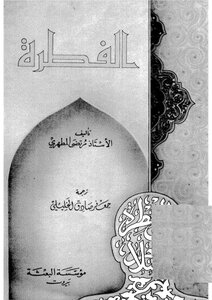 الفطرة
تأليف
الأستاذ مرتضى المطهري
ترجمة
جعفر صادق الخليلي
مؤسسة البعثة
بيروت